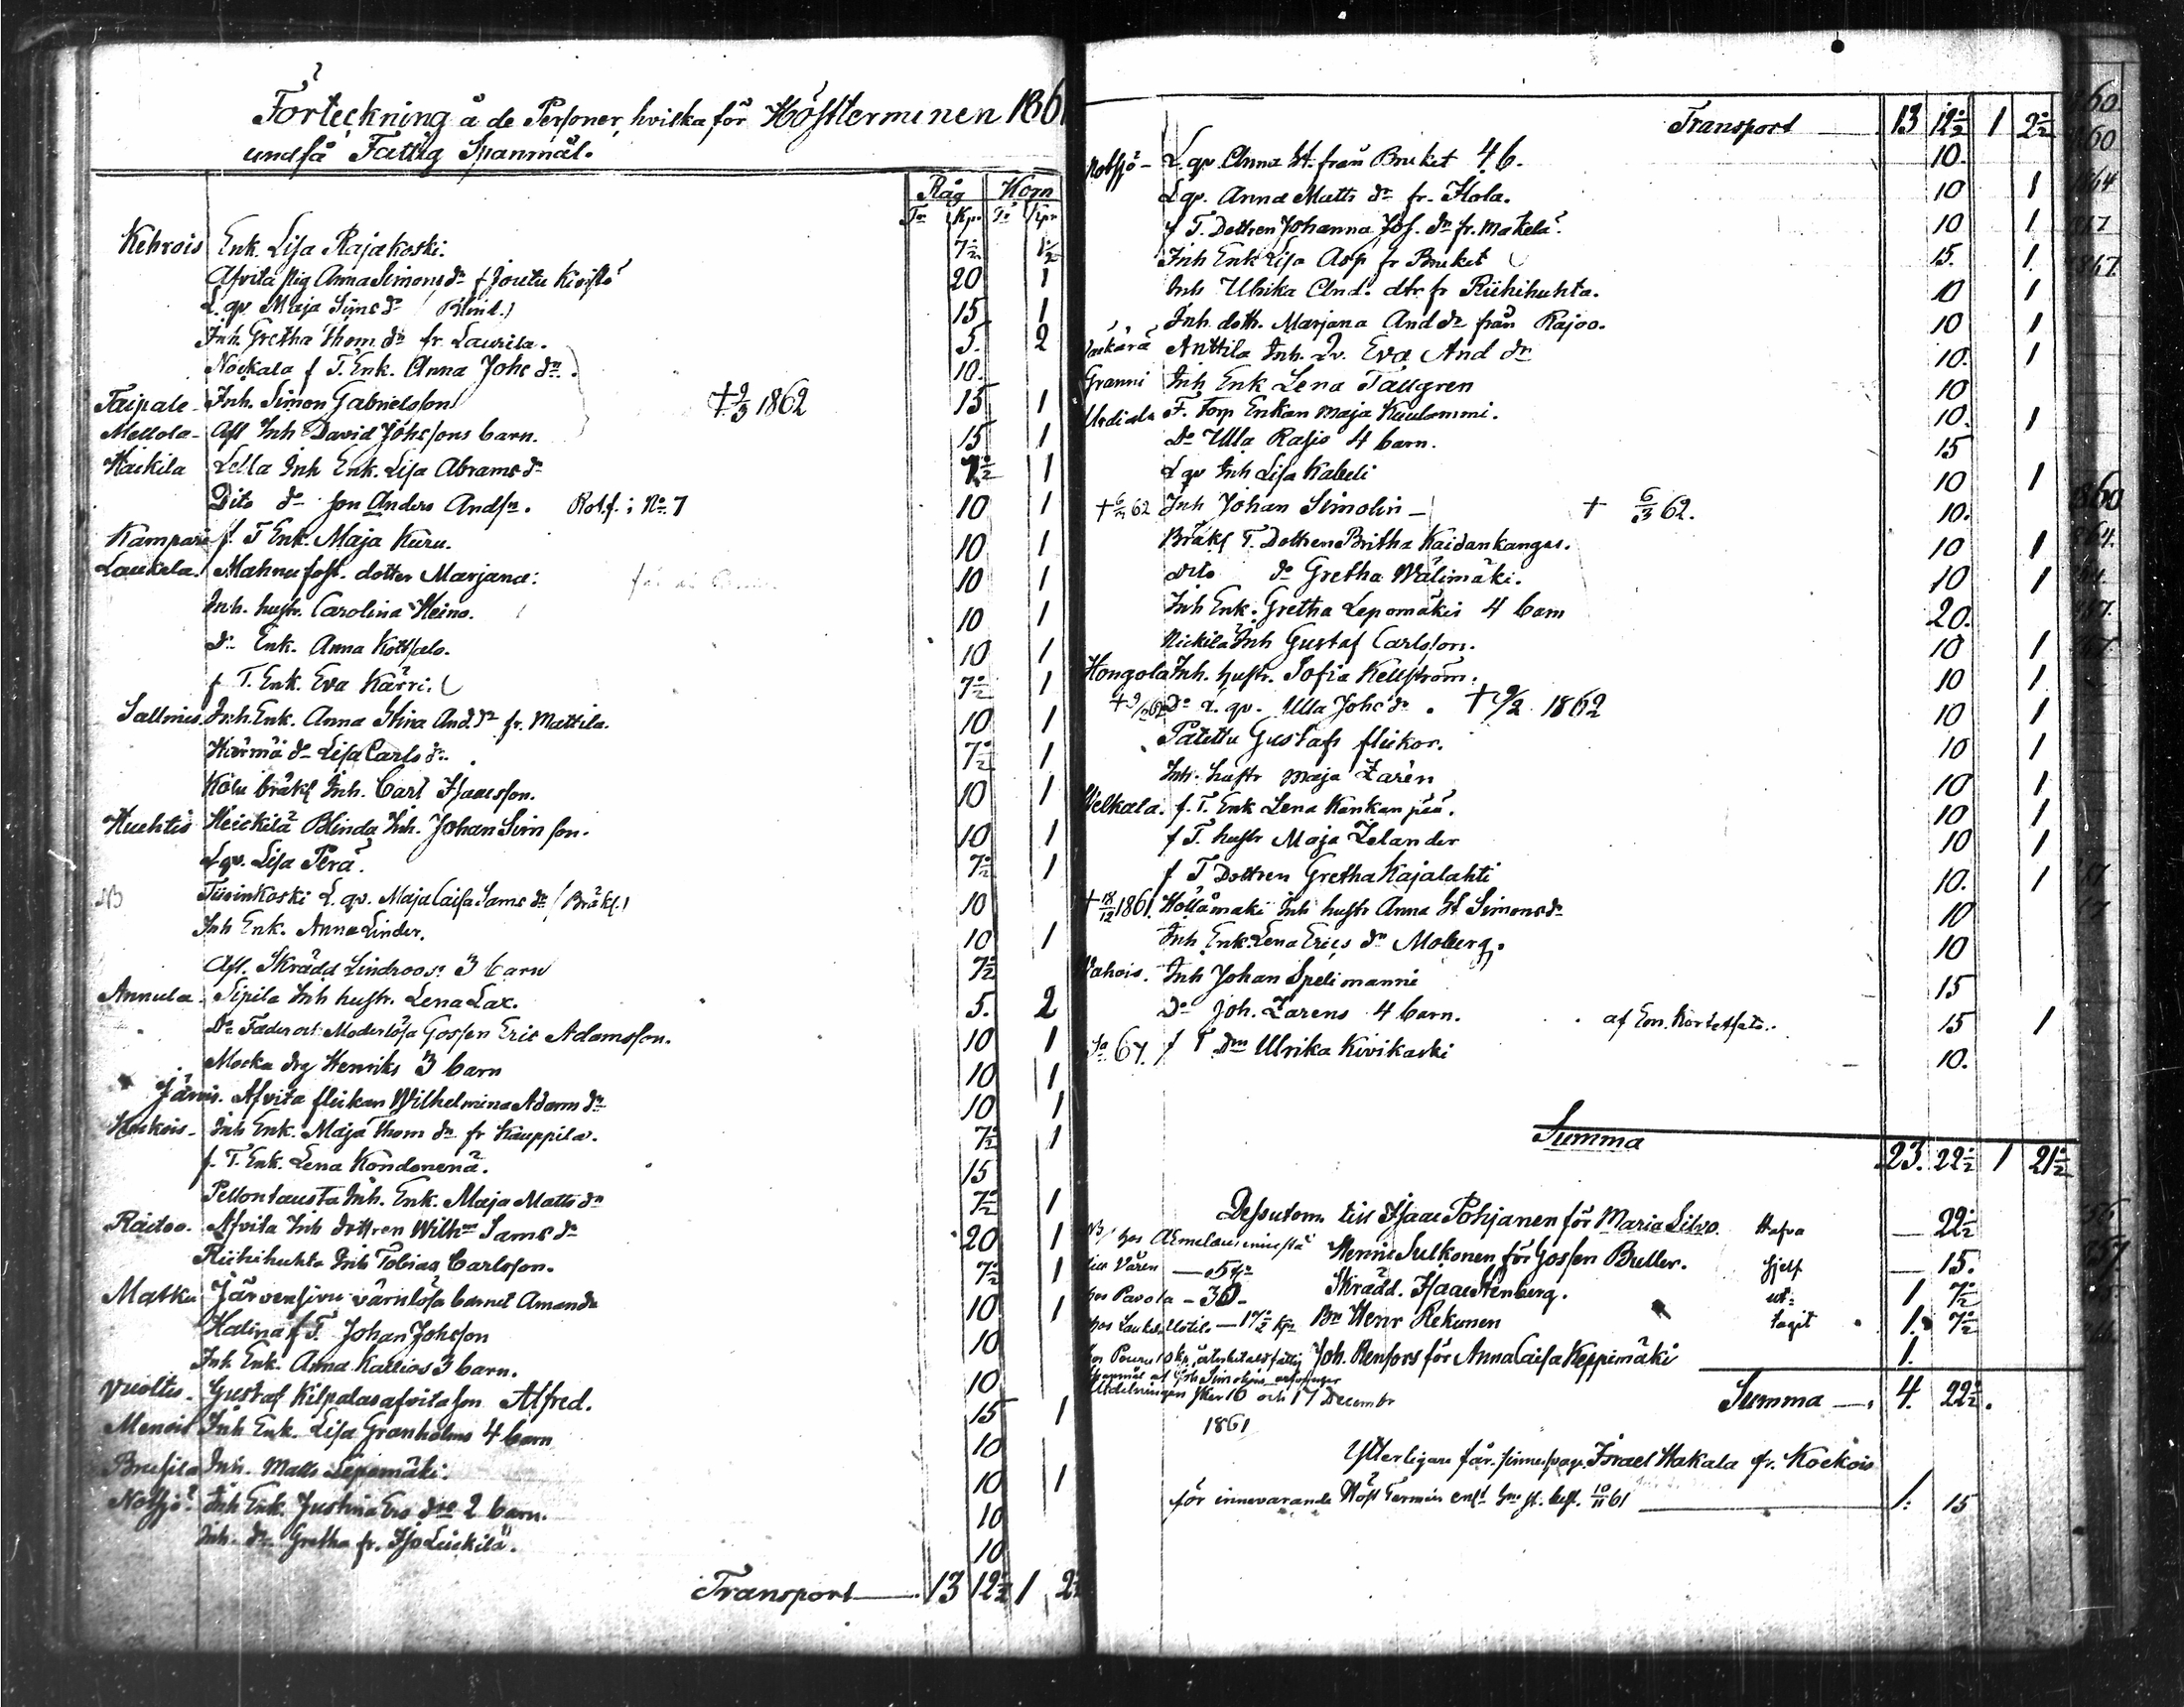 Förteckning å de Personer, hvilka för Höstterminen 186
undfå Fattig Spanmål.
Råg Korn
Tr Kpr Tr Kpr
Kehrois Enk. Lisa Rajakoski. 7½ 1½
Afvita pig Anna Simons dr f Joutu 20 1
L. qv. Maja Sims dr (Blind.) 15 1
Inh. Gretha Thom. dr fr. Laurila. 5. 2
Nockala f T. Enk. Anna Johs dr. 10.
Taipale Inh. Simon Gabrielsson † 9/3 1862 15 1
Mellola Afl Inh David Johssons barn. 15 1
Haikila Lella Inh Enk. Lisa Abrams dr 7½ 1
Dito do son Anders Andsn. Rot.f. i No. 7 10 1
f. T Enk. Maja Kuru. 10 1
Laukela. fost. dotter Marjana: 10 1
Inh. hustr. Carolina Heino. 10 1
do Enk. Anna 10 1
f T. Enk. Eva Kärri. 7½ 1
Sallmis Inh. Enk. Anna Stina And. dr fr. Mattila. 10 1
Härmä do Lisa Carls dr. 7½ 1
Kölu bräkl. Inh. Carl Isaacsson. 10 1
Huhtis Heickilä Blinda Inh. Johan Simsson. 10 1
L qv. Lisa Perä. 7½ 1
NB L. qv. Maja Caisa Sams dr (Bräkl.) 10
Inh Enk. Anna Linder. 10 1
Afl. Skrädd Lindroos: 3 barn 7½
Annula Sipila Inh hustr. Lena Lax. 5. 2
Do Fader och Moderlösa Gossen Eric Adamsson. 10 1
Mocka drg Henriks 3 barn 10 1
Afvita flickan Wilhelmina Adams dr 10 1
Inh Enk. Maja Thom dr fr Kauppila. 7½ 1
f. T. Enk. Lena 15
Pellontausta Inh. Enk. Maja Matts dr 7½ 1
Raitoo. Afvita Inh dottren Wilhna Sams dr 20 1
Riihihuhta Inh Tobias Carlsson. 7½ 1
Matku Järvensivu värnlösa barnet Amanda 10 1
Halina f T. Johan Johsson 10
Inh Enk. Anna Kallios 3 barn. 10
Vuoltis. Gustaf Kilpalas afvita son Alfred. 15 1
Menois Inh Enk. Lisa Granholms 4 barn 10
Inh. Matts Lepomäki. 10 1
Notsjö Inh Enk. Justina Ers drs 2 barn. 10
Inh. dr. Gretha fr. Iso Luikilä. 10
Transport 13 12½ 1 2½
Transport 13 12½ 1 2½
Notsjö L. qv. Anna St. från Bruket 4 b. 10.
L qv. Anna Matts dr fr. Hola. 10 1
f T. Dottren Johanna Jos. dr fr. Mäkelä. 10 1
Inh Enk Lisa Asp fr Bruket 15. 1.
Inh Ulrika And. dtr fr Riihihuhta. 10 1
Inh. dott. Marjana And dr från Rajoo. 10 1
Anttila Inh. Qv. Eva And dr 10. 1
Granni Inh Enk Lena Tallgren 10
Urdiala F. Torp Enkan Maja Kuulammi. 10. 1
Do Ulla Rasis 4 barn. 15
L qv Inh Lisa Kabeli 10 1
† 6/3 62 Inh Johan Simolin † 6/3 62. 10.
Bräkl T. Dottren Britha Kaidankangas. 10 1
Dito do Gretha Wälimäki. 10 1
Inh Enk. Gretha Lepomäkis 4 barn 20.
Nickilä Inh Gustaf Carlsson. 10 1
Hongola Inh. hustr. Sofia Kellström. 10 1
† 9/2 62 Do L. qv. Ulla Johs dr. † 9/2 1862 10 1
Gustafs flickor. 10 1
Inh. hustr Maja Zarén 10 1
Welkala. f. T. Enk Lena Kankanpää. 10 1
f T. hustr Maja Zelander 10 1
f T Dottren Gretha Kajalahti 10. 1
† 18/12 1861. Höllämäki Inh hustr Anna St Simons dr 10
Inh Enk. Lena Erics dr Moberg. 10
Wahois. Inh Johan Spelimanni 15
Do Joh. Zarens 4 barn. af Em. 15 1
67. f T Drn Ulrika Kivikaski 10.
Summa 23. 22½ 1 21½
Dessutom till Isaac Pohjanen för Maria Silvo. Hafva 22½
NB/ hos
Henric Sulkonen för Gossen Buller. hjelp 15.
Våren
Skrädd. Isaac Stenberg. ut- 1 7½
hos Pavola 30
17½ kpr Bn Henr Rekunen tagit 1. 7½
Joh. Renfors för Anna Caisa Keppimäki 1.
Utdelningen sker 16 och 17 Decembr
1861
Summa 4. 22½.
Ytterligare får Israel Hakala fr. Kockois
för innevarande Höst Termin 10/11 61 1. 15